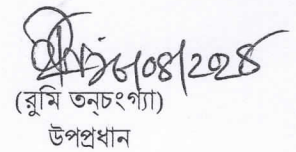 ১৬/০৪/২০২৪
(রুমি তন্চংগ্যা)
উপপ্রধান